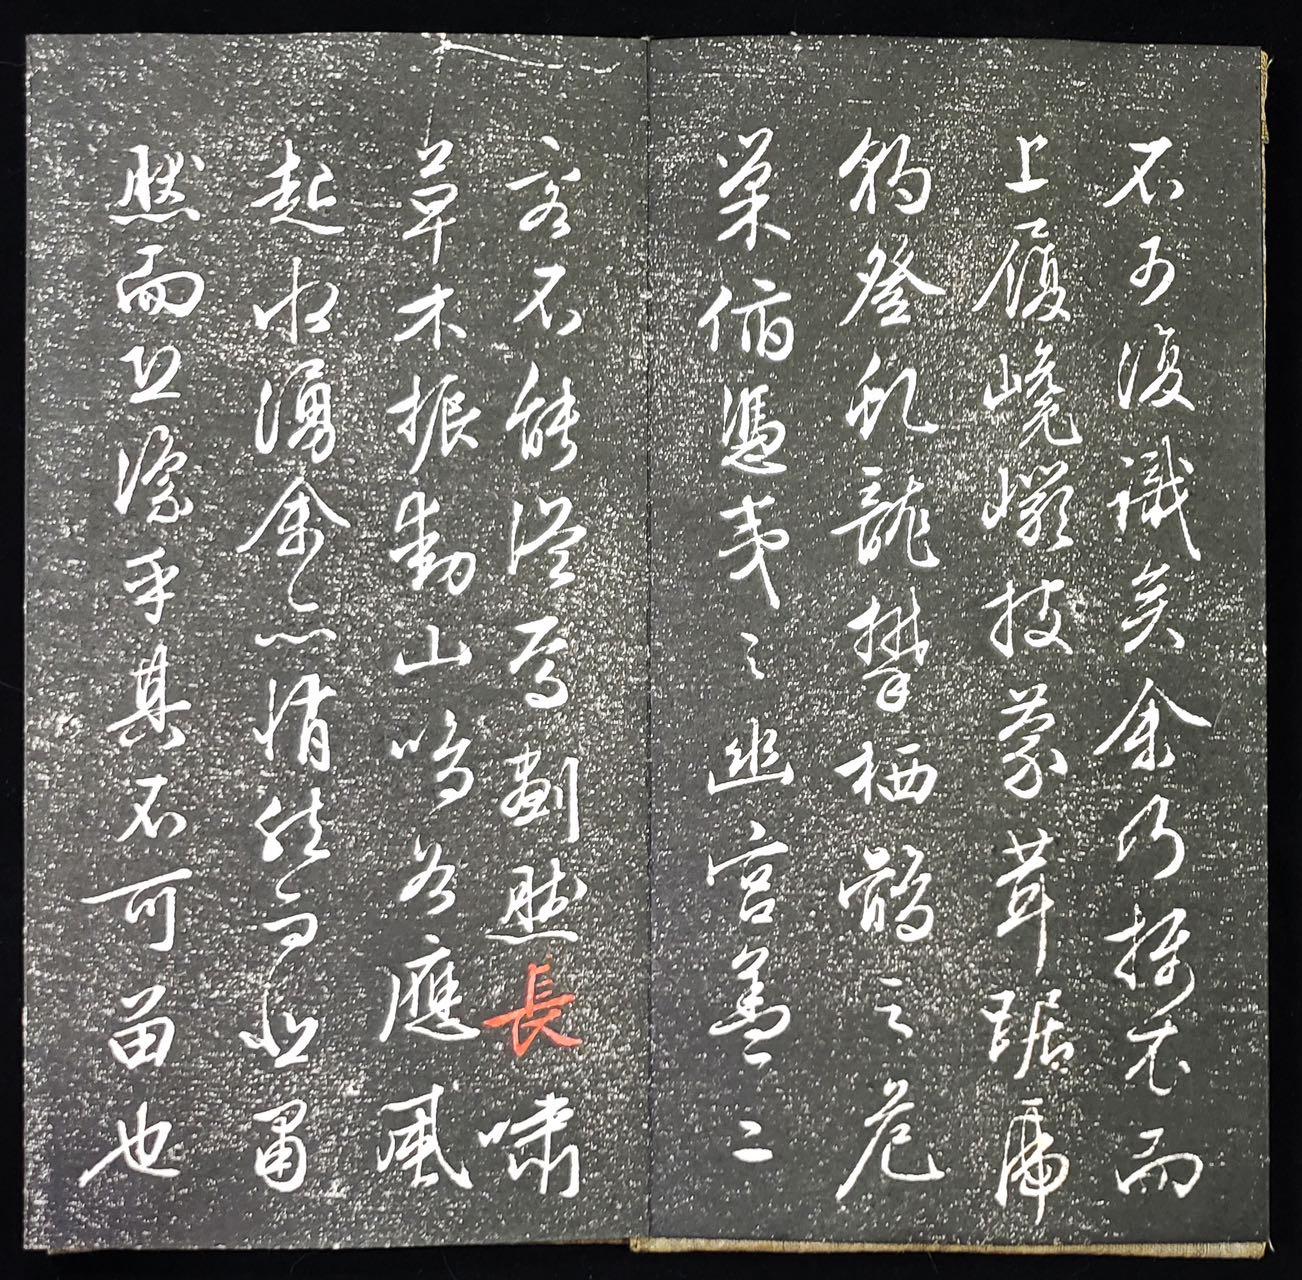 不可復識矣余乃攝衣而
上履巉巖披蒙茸踞虎
豹登虬龍攀栖鶻之危
巢俯憑夷之幽宮蓋二
客不能從焉劃然長嘯
草木振動山鳴谷應風
起水湧余亦悄然而悲肅
然而恐凜乎其不可留也